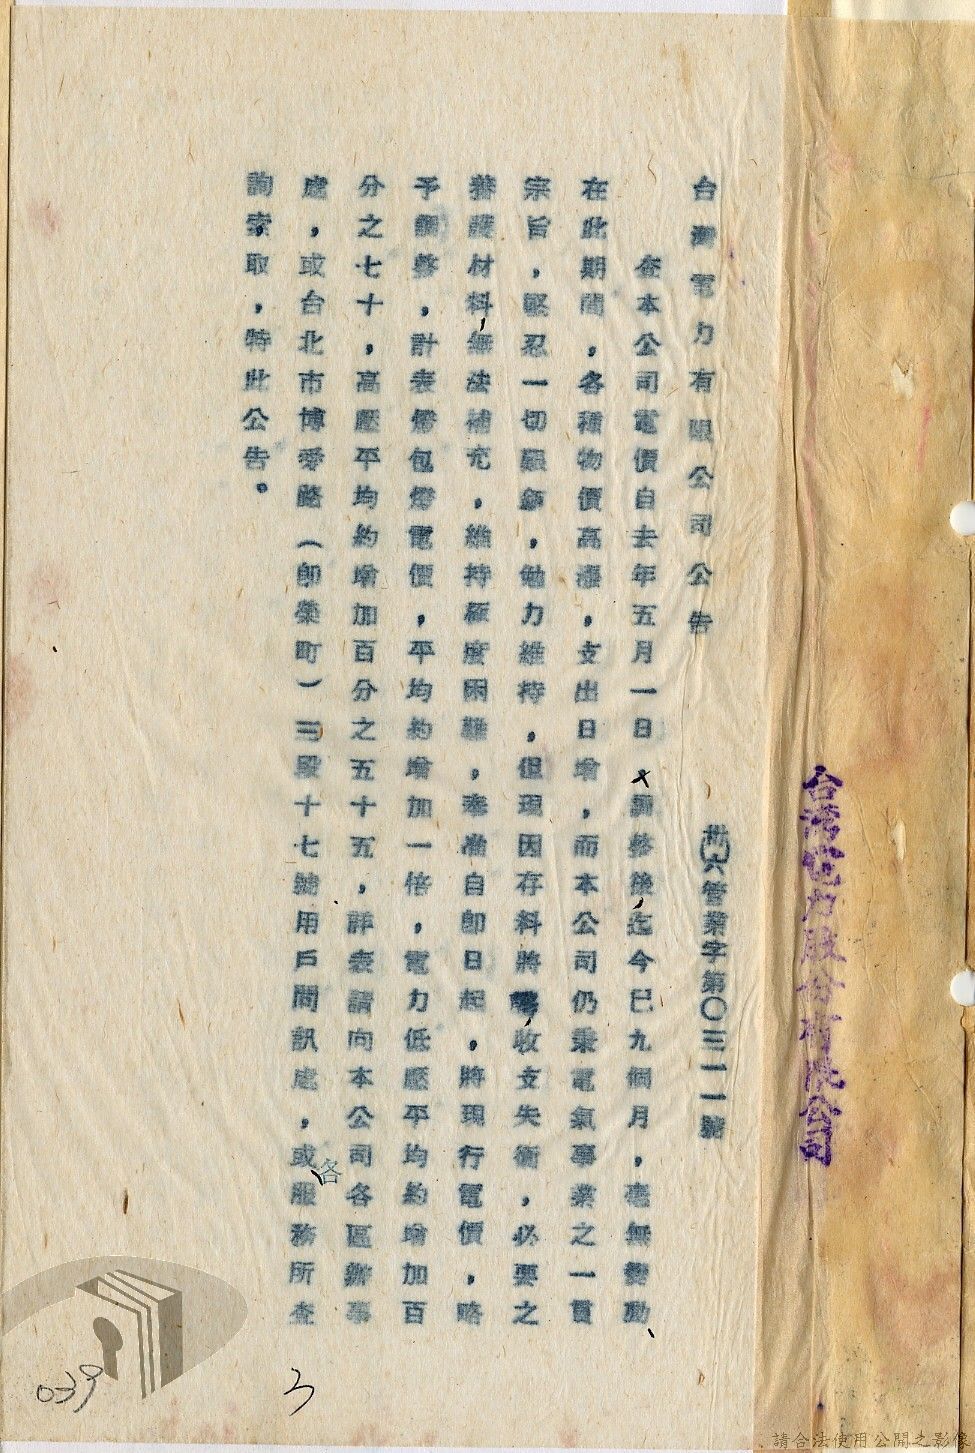 台灣電力股份有限公司
台灣電力有限公司公告
卅六管業字第〇三一一號
查本公司電價自去年五月一日,調整後,迄今已九個月,毫無變動、
在此期間,各種物價高漲,支出日增,而本公司仍秉電氣事業之一貫
宗旨,堅忍一切艱鉅,勉力維持,但現因存料將罄,收支失衡,必要之
養護材料,無法補充,維持極度困難,奉准自即日起,將現行電價,略
予調整,計表燈包燈電價,平均約增加一倍,電力低壓平均約增加百
分之七十,高壓平均約增加百分之五十五,詳表請向本公司各區辦事
處,或台北市博愛路(即榮町)三段十七號用戶問訊處,或各服務所查
詢索取,特此公告。
3
039
請合法使用公開之影像